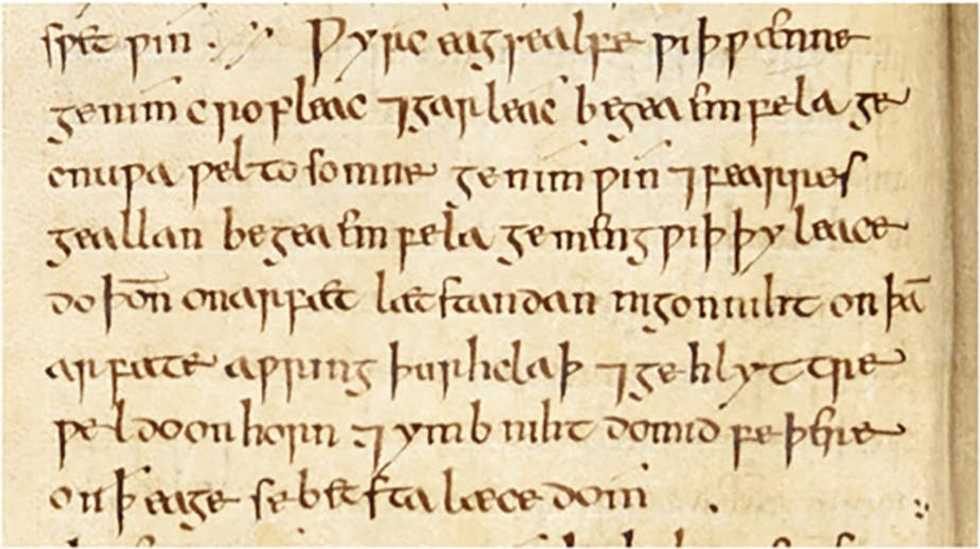 sƿet ƿin . Ƿyrc eagsealfe ƿiþ ƿænne
genim cropleac ⁊ garleac begea emfela ge
cnuƿa ƿel tosomne genim ƿin ⁊ fearres
geallan begea emfela gemeng ƿiþ þy leace
do þoñ on arfæt læt standan nigon niht on þā
arfate aƿring þurh claþ ⁊ gehlyttre
ƿel do on horn ⁊ ymb niht do mid feþre
on ꝥ eage se betsta læcedom